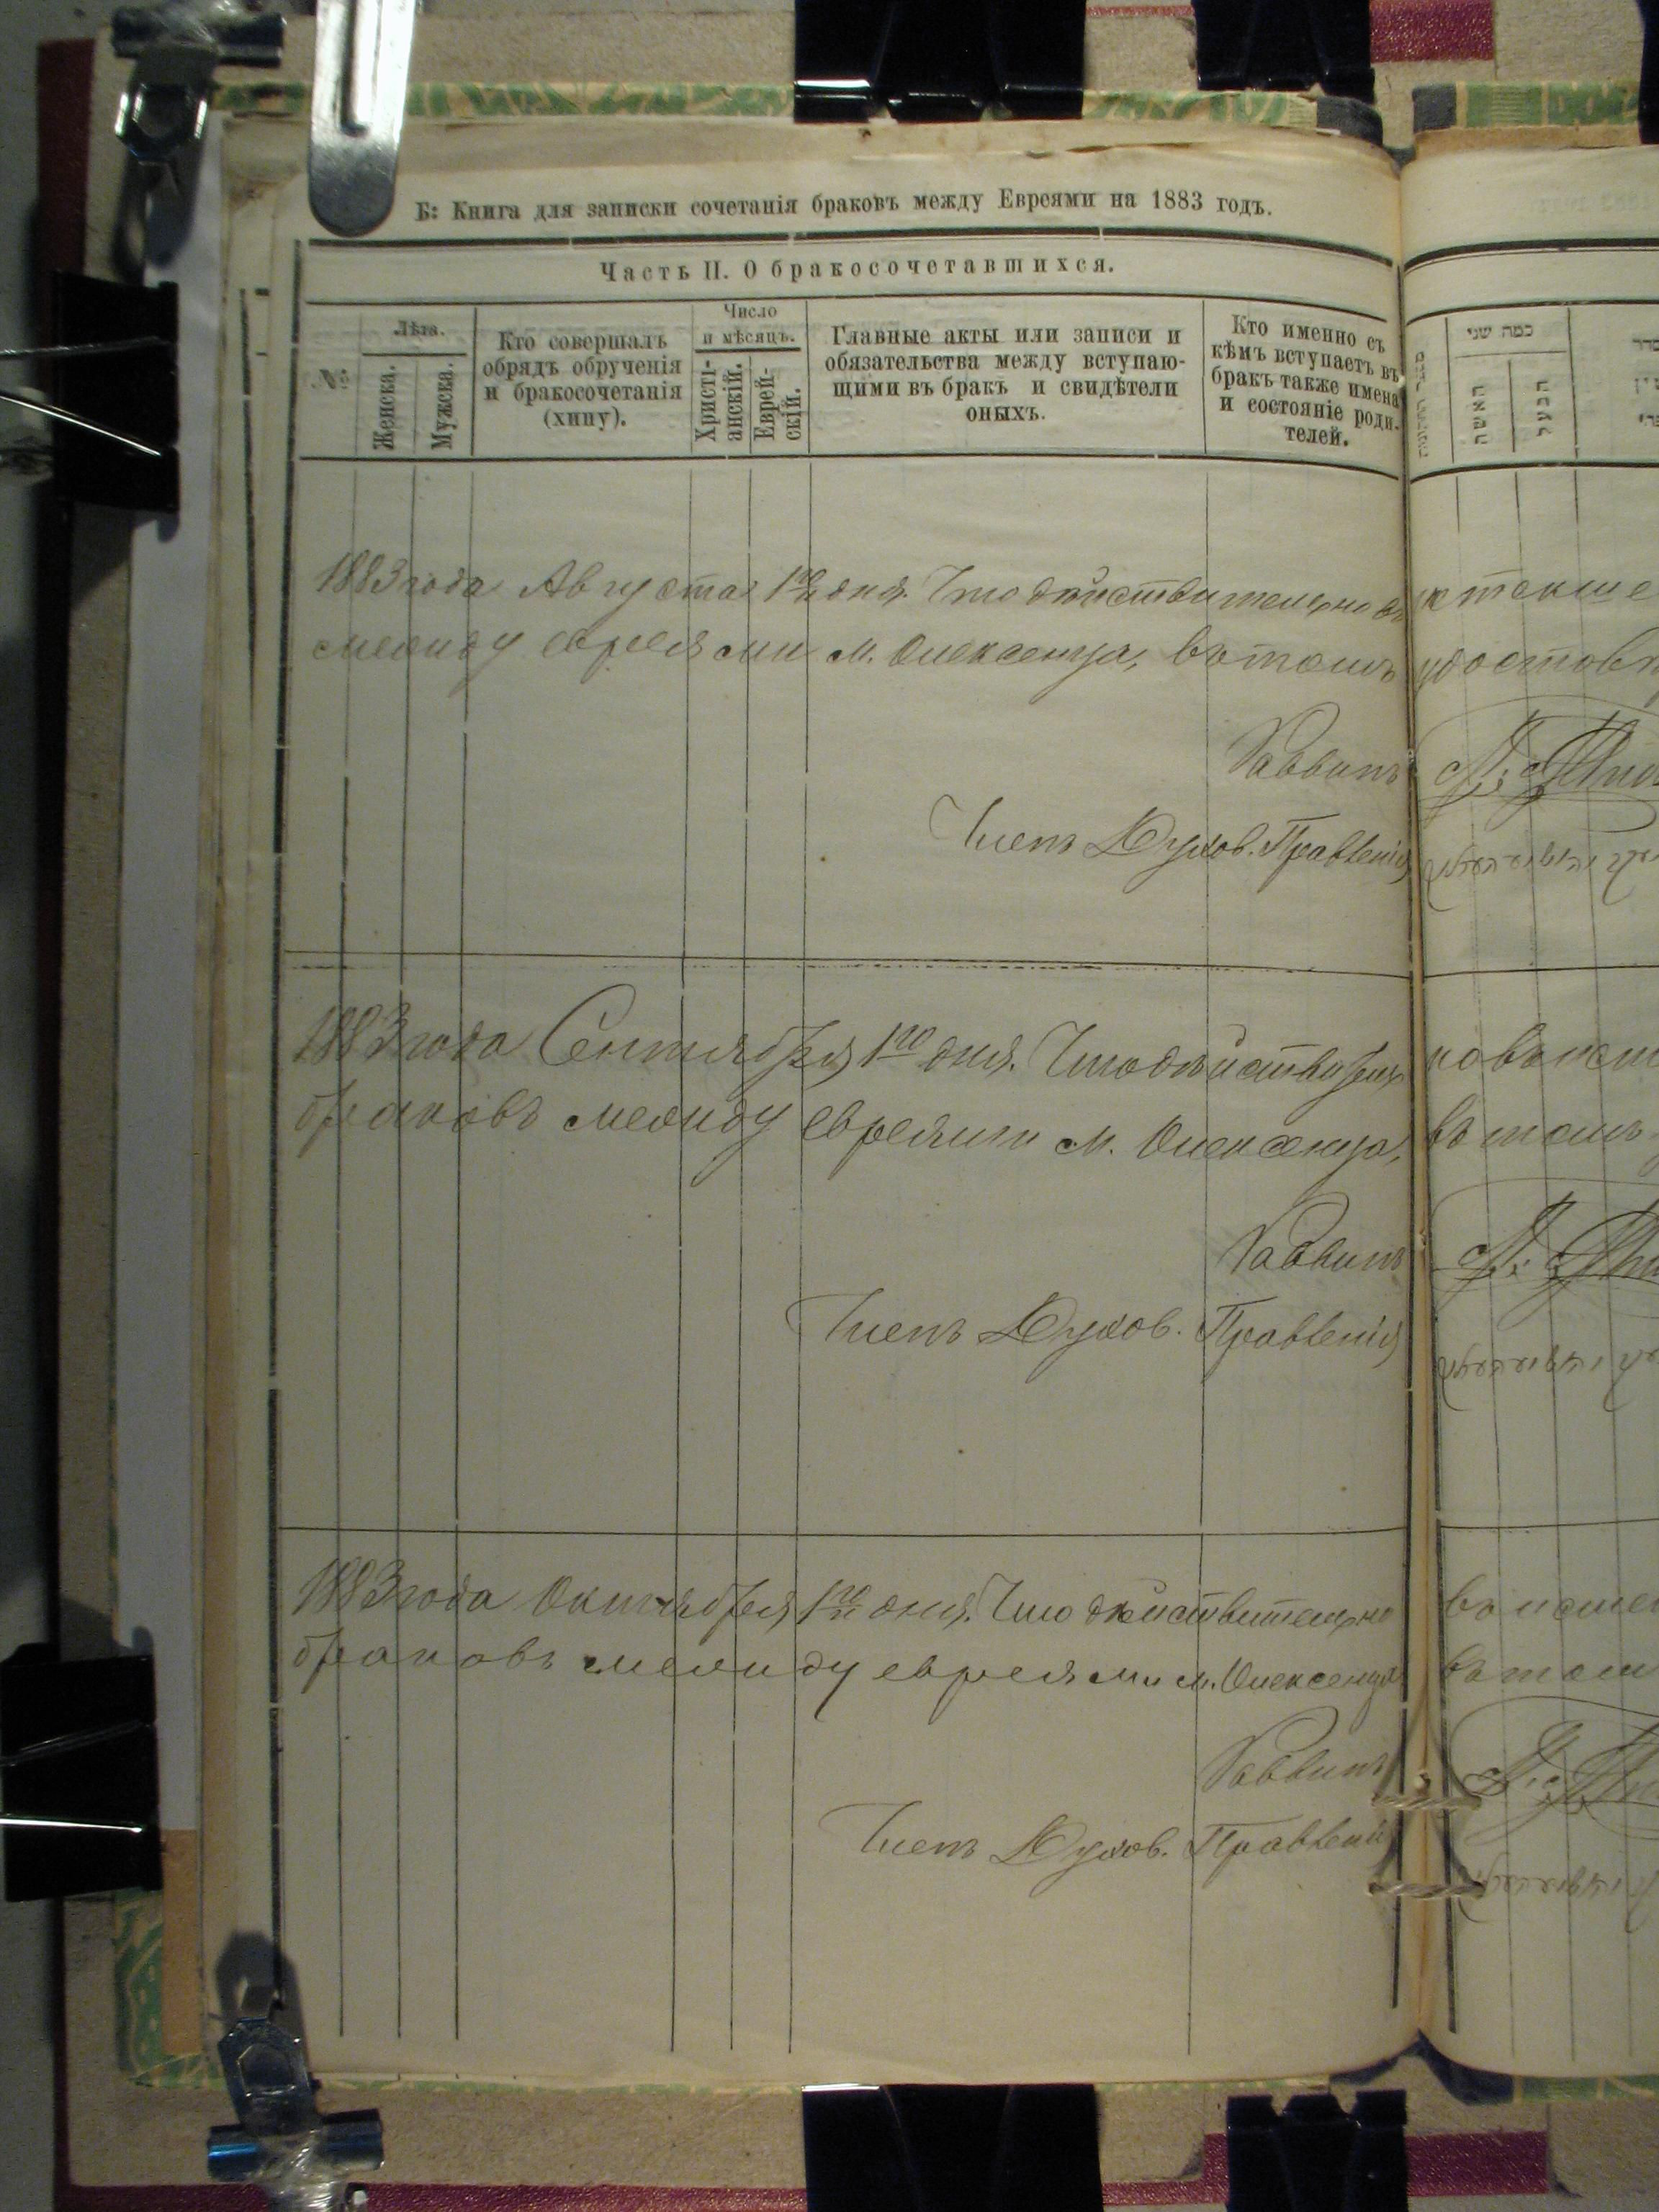 Б: Книга для записки сочетанія браковъ между Евреями на 1883 годъ.
Часть II. О бракосочетавшихся.
№
Лѣта.
Женска.
Мужска.
Кто совершалъ
обрядъ обрученія
и бракосочетанія
(хипу).
Число
и мѣсяцъ.
Христі-
анскій.
Еврей-
скій.
Главные акты или записи и
обязательства между вступаю-
щими въ бракъ и свидѣтели
оныхъ.
Кто именно съ
кѣмъ вступаетъ въ
бракъ также имена
и состояніе роди-
телей.
כמה שני
האשה
הבעל
1883 года Августа 1го дня. Что дѣйствительно въ
между евреями м. Олексенца, въ томъ
Раввинъ
Членъ Духов. Правленія
1883 года Сентября 1го дня. Что дѣйствительно
браковъ между евреями м. Олексенца, въ томъ
Раввинъ
Членъ Духов. Правленія
1883 года Октября 1го дня. Что дѣйствительно
браковъ между евреями м. Олексенца
Раввинъ
Членъ Духов. Правленія